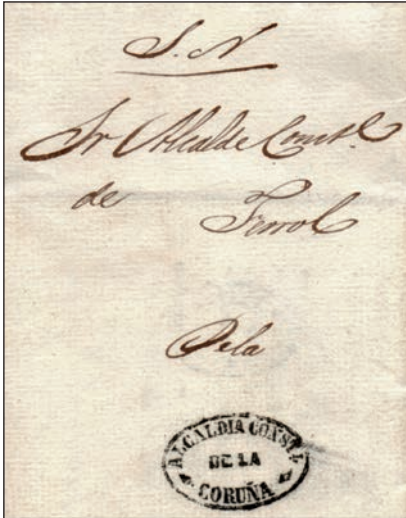 S. N
Sr Alcalde Const.l
de Ferrol
De la
ALCALDIA CONST.L
DE LA
CORUÑA